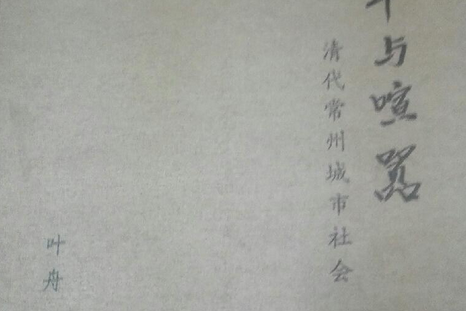 与喧嚣
清代常州城市社会
叶舟